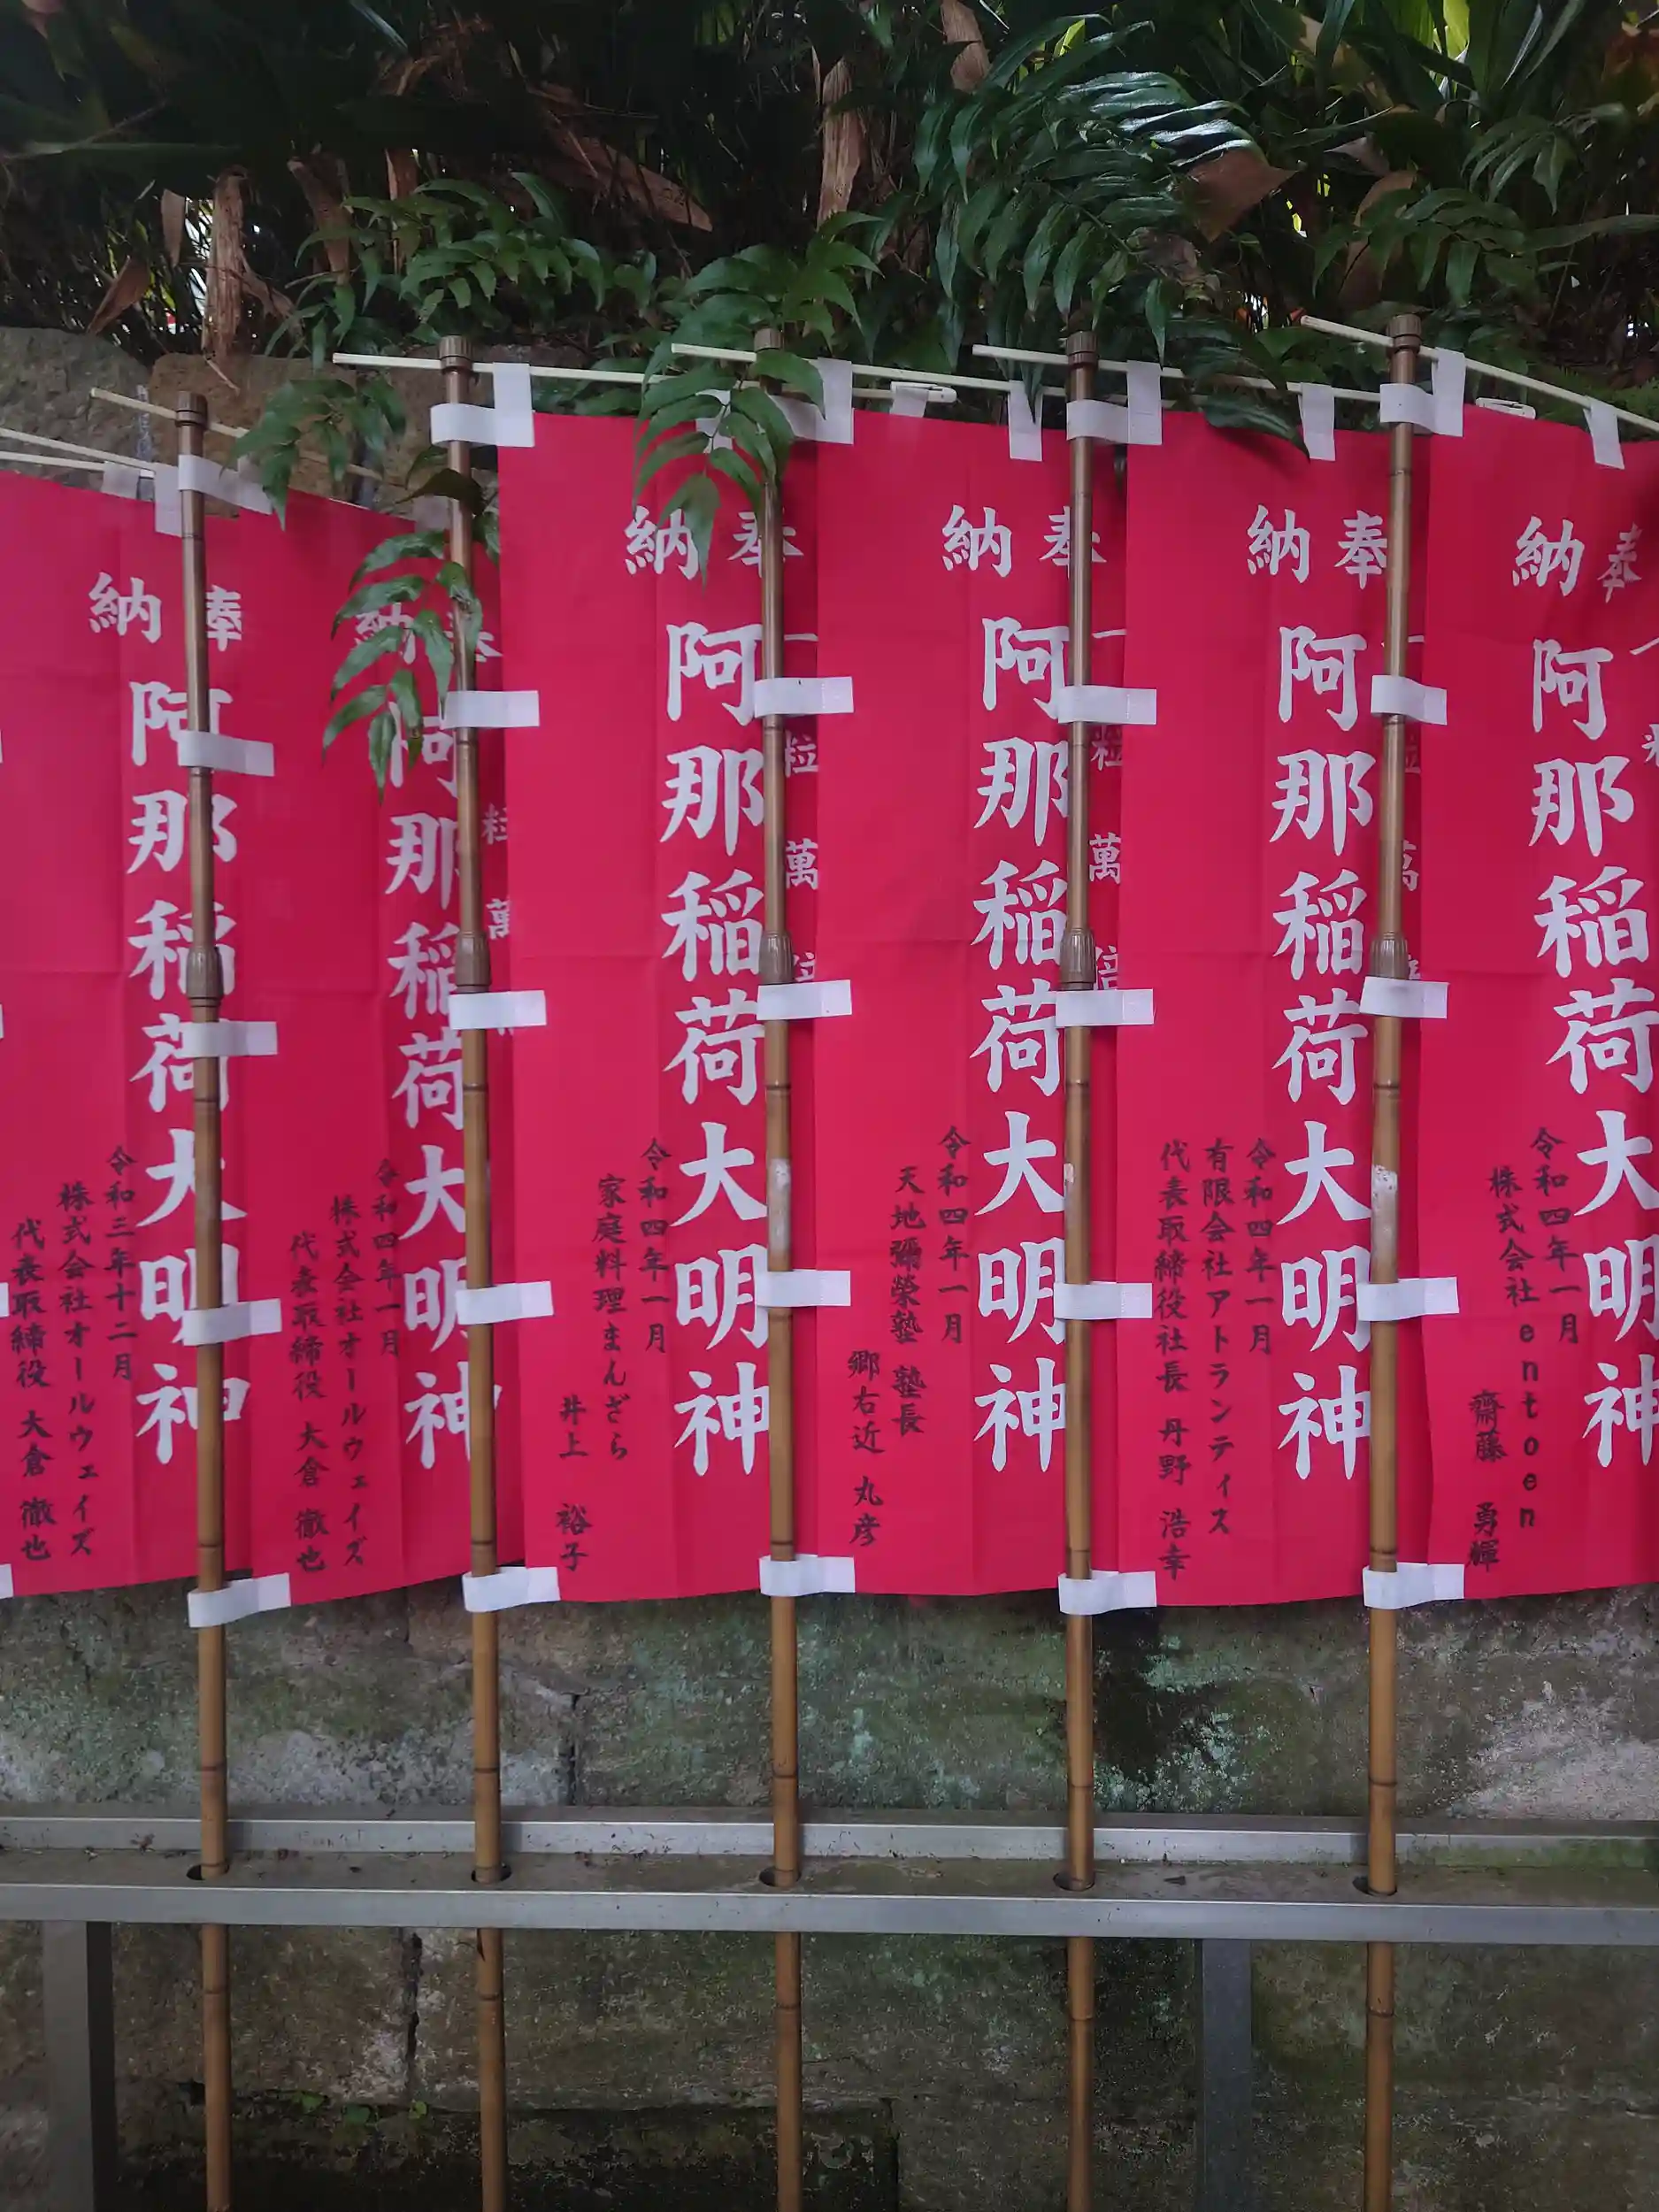 奉納
阿那稲荷大明神
令和三年十二月
株式会社オールウェイズ
代表取締役 大倉 徹也
奉納
粒萬
阿那稲荷大明神
令和四年一月
株式会社オールウェイズ
代表取締役 大倉 徹也
奉納
一粒萬倍
阿那稲荷大明神
令和四年一月
家庭料理まんざら
井上 裕子
奉納
一粒萬倍
阿那稲荷大明神
令和四年一月
天地彌榮塾 塾長
郷右近 丸彦
奉納
一粒萬倍
阿那稲荷大明神
令和四年一月
有限会社アトランティス
代表取締役社長 丹野 浩幸
奉納
一粒
阿那稲荷大明神
令和四年一月
株式会社entoen
齋藤 勇輝